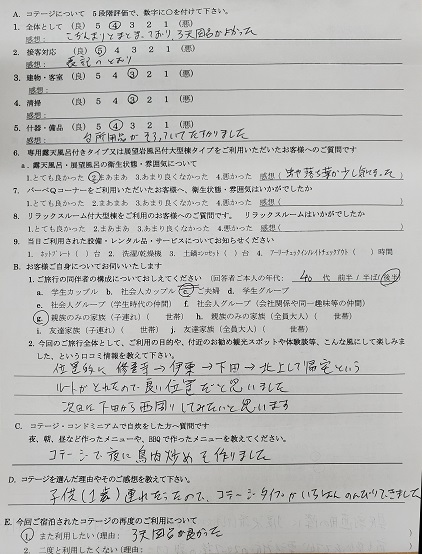 A. コテージについて 5段階評価で、数字に○を付けて下さい。
1. 全体として (良) 5 4 3 2 1 (悪)
感想: こぢんまりとまとまっており、3天図呂がよかった
2. 接客対応 (良) 5 4 3 2 1 (悪)
感想: 表記のとおり
3. 建物・客室 (良) 5 4 3 2 1 (悪)
感想:
4. 清掃 (良) 5 4 3 2 1 (悪)
感想:
5. 什器・備品 (良) 5 4 3 2 1 (悪)
感想: 台所用品がそろっていてたすかりました
6. 専用露天風呂付きタイプ又は展望岩風呂付大型棟タイプをご利用いただいたお客様へご質問です
a. 露天風呂・展望風呂の衛生状態・雰囲気について
1.とても良かった 2.まあまあ 3.あまり良くなかった 4.悪かった 感想( 虫や落ち葉が少し気になった )
7. バーベQコーナーをご利用いただいたお客様へ、衛生状態・雰囲気はいかがでしたか
1.とても良かった 2.まあまあ 3.あまり良くなかった 4.悪かった 感想( )
8. リラックスルーム付大型棟をご利用のお客様へご質問です。 リラックスルームはいかがでしたか
1.とても良かった 2.まあまあ 3.あまり良くなかった 4.悪かった 感想( )
9. 当日ご利用された設備・レンタル品・サービスについてお知らせください
1. ホットプレート( )台 2. 洗濯/乾燥機 3. 土鍋コンロセット( )台 4. アーリーチェックイン/レイトチェックアウト( )時間
B. お客様ご自身についてお伺いいたします
1.ご旅行の同伴者の構成についておしえてください (回答者ご本人の年代: 40 代 前半/半ば/後半)
a. 学生カップル b. 社会人カップル c. ご夫婦 d. 学生グループ
e. 社会人グループ(学生時代の仲間) f. 社会人グループ(会社関係や同一趣味等の仲間)
g. 親族のみの家族(子連れ)( 世帯) h. 親族のみの家族(全員大人)( 世帯)
i. 友達家族(子連れ)( 世帯) j. 友達家族(全員大人)( 世帯)
2. 今回のご旅行全体として、ご利用の目的や、付近のお勧め観光スポットや体験談等、こんな風にして楽しみま
した、という口コミ情報を教えて下さい。
位置的に 修善寺→伊東→下田→北上して帰宅という
ルートがとれたので良い位置だと思いました
次回は下田から西周りしてみたいと思います
C. コテージ・コンドミニアムで自炊をした方へ質問です
夜、朝、昼など作ったメニューや、BBQで作ったメニューを教えてください。
コテージで夜に鳥肉炒めを作りました
D. コテージを選んだ理由やそのご感想を教えて下さい。
子供(1歳)連れだったので、コテージタイプがいちばんのんびりできました
E. 今回ご宿泊されたコテージの再度のご利用について
1. また利用したい(理由: 3天図呂が良かった
2. 二度と利用したくない(理由: